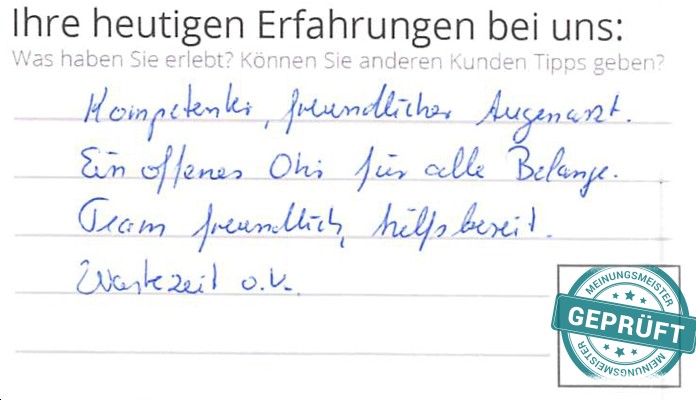 Ihre heutigen Erfahrungen bei uns:
Was haben Sie erlebt? Können Sie anderen Kunden Tipps geben?
Kompetenter, freundlicher Augenarzt.
Ein offenes Ohr für alle Belange.
Team freundlich, hilfsbereit.
Wartezeit o.k.
MEINUNGSMEISTER
GEPRÜFT
MEINUNGSMEISTER